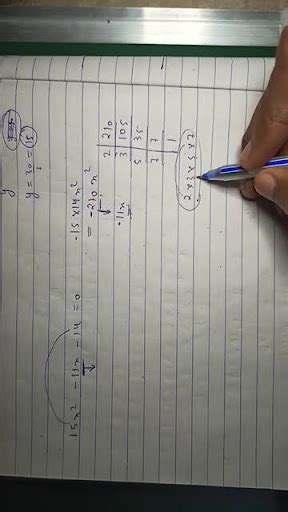 y
y = 30 = 15
15x² - 11x - 14 = 0
-15 × 14x²
= -210x²
-11x
2 | 210
3 | 105
5 | 35
7 | 7
1
2 × 3 × 5 × 7